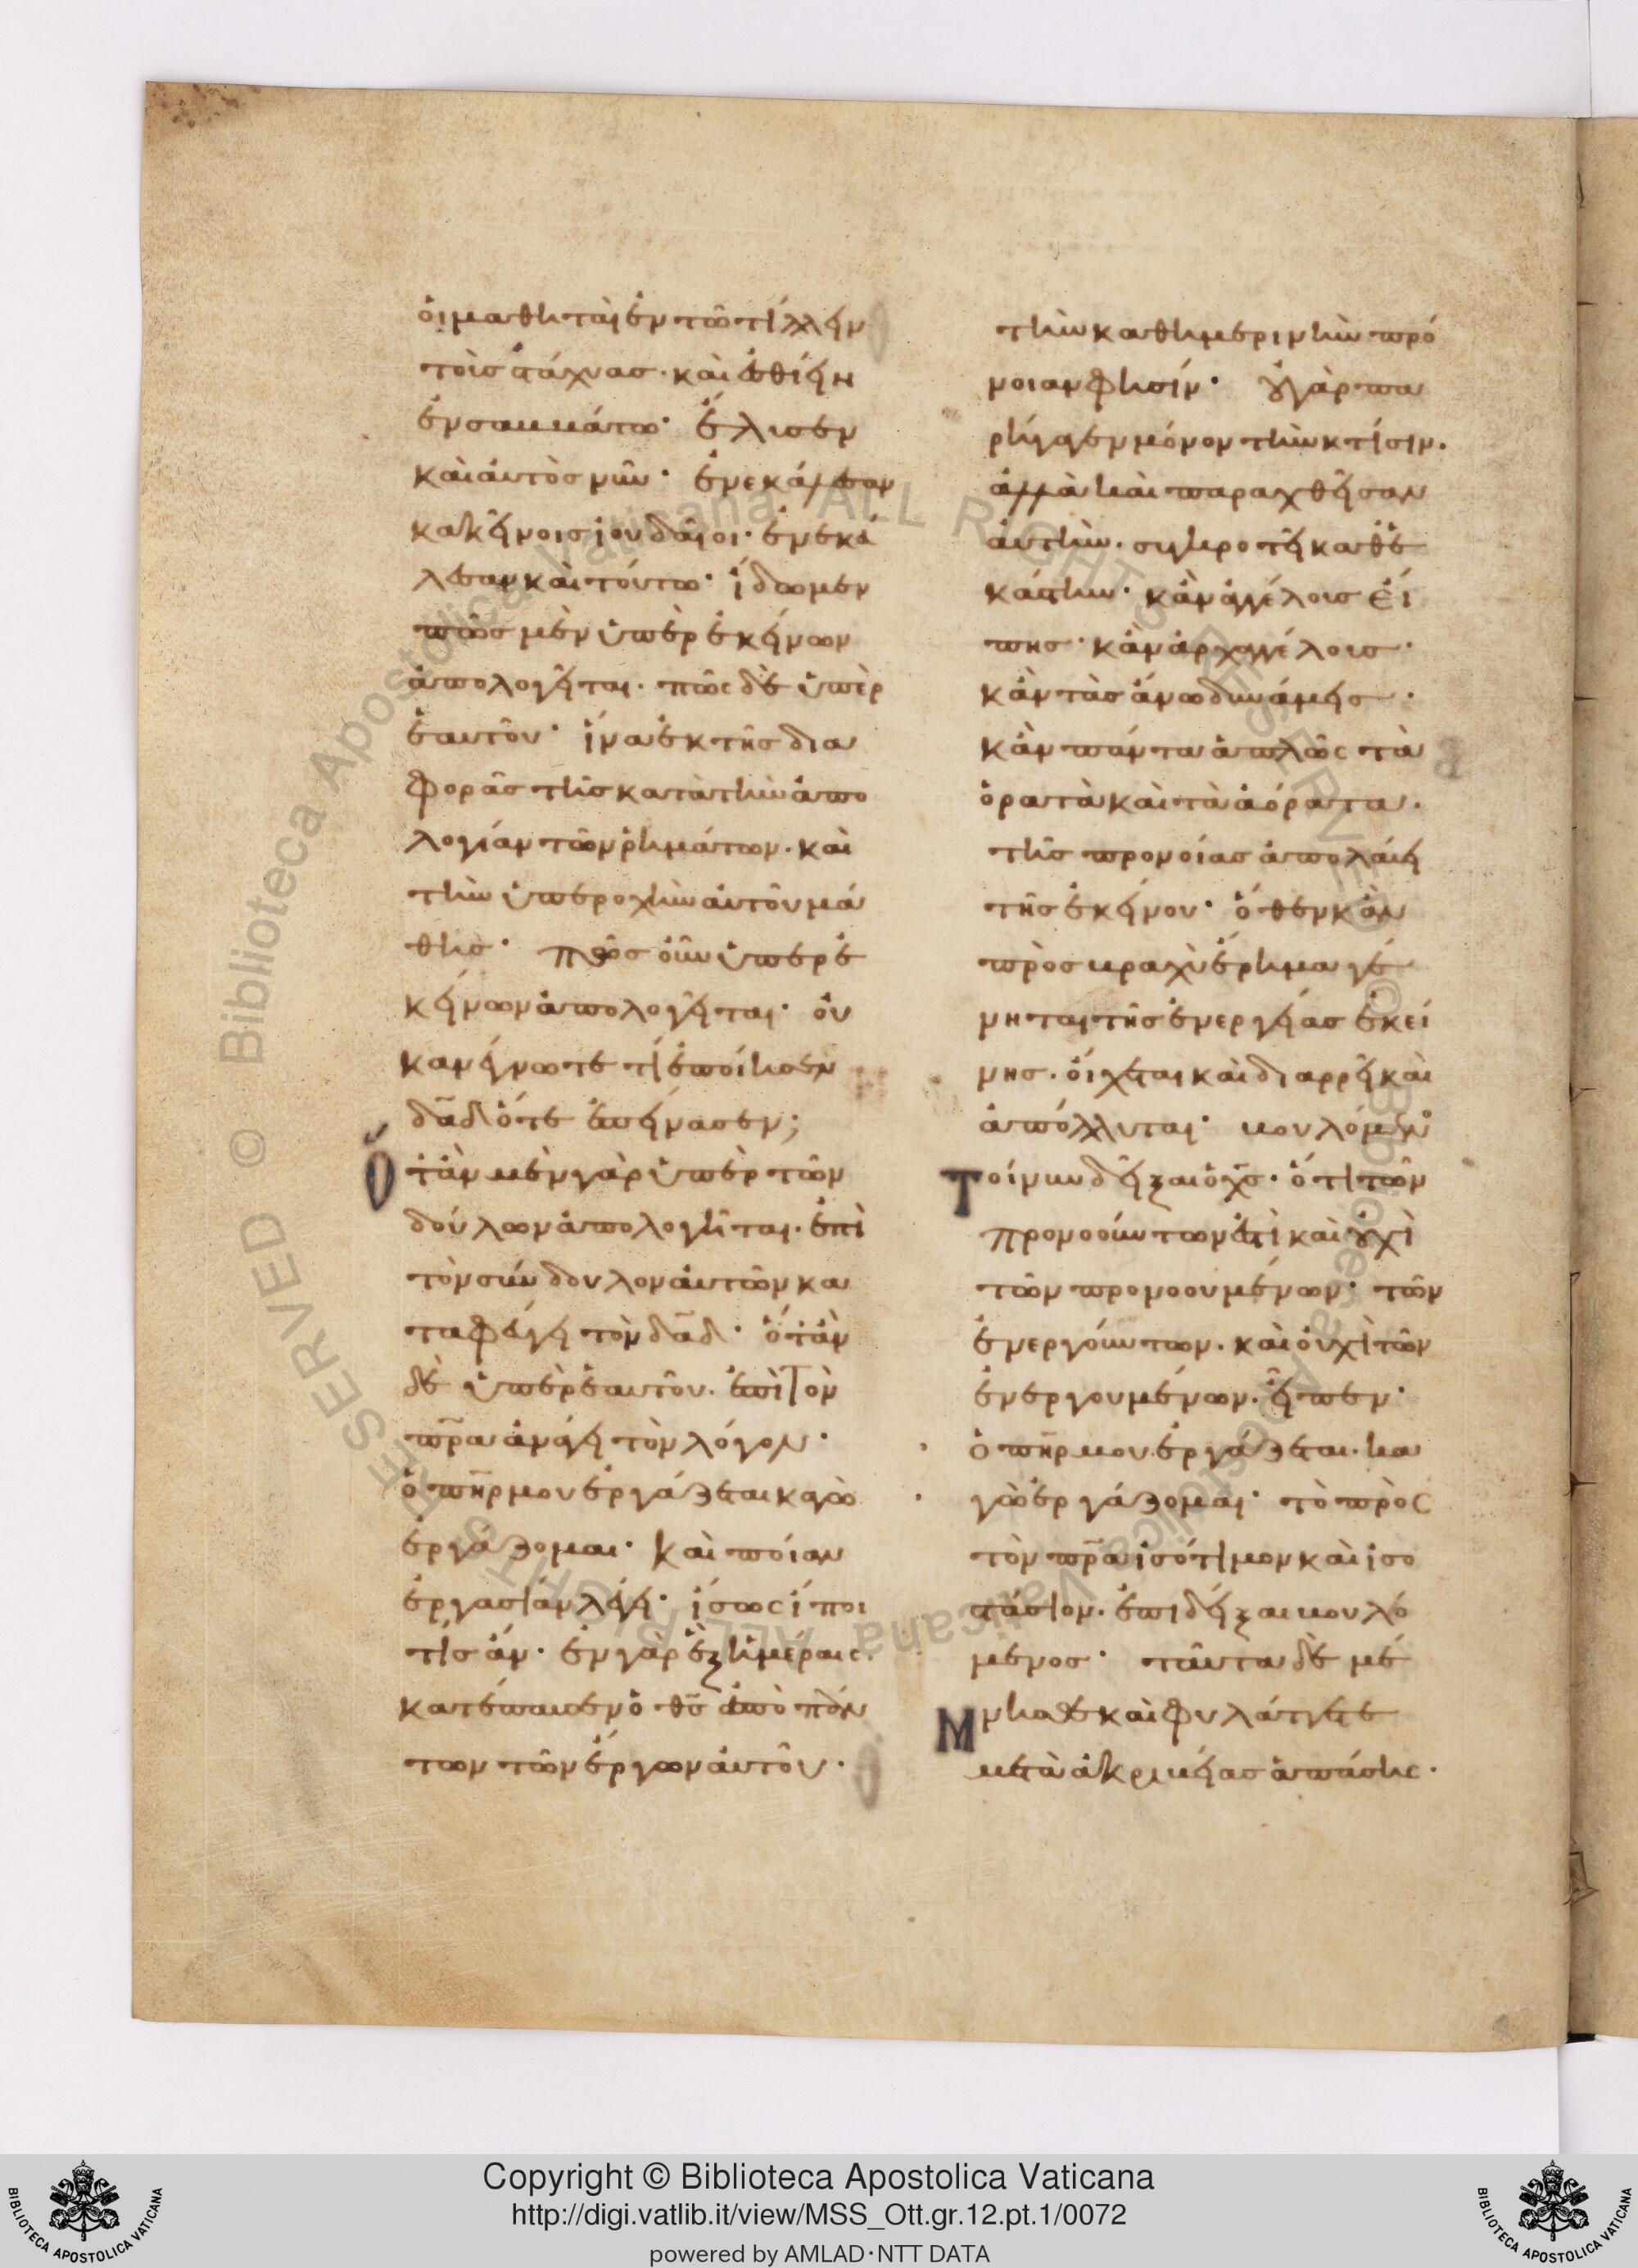 οἱ μαθηταὶ ἐν τῶ τίλλειν
τοὺς στάχυας· καὶ ἐσθίειν
ἐν σαββάτω· ἔλυσεν
καὶ αὐτὸς νῦν· ἐνεκάλεσαν
κακείνοις ἰουδαῖοι· ἐνεκά
λεσαν καὶ τούτω· ἴδωμεν
πῶς μὲν ὑπὲρ ἐκείνων
ἀπολογεῖται· πῶς δὲ ὑπὲρ
ἑαυτοῦ· ἵνα ἐκ τῆς δια
φορᾶς τῆς κατὰ τὴν ἀπο
λογίαν τῶν ῥημάτων· καὶ
τὴν ὑπεροχὴν αὐτοῦ μά
θης· πῶς οὖν ὑπὲρ ἐ
κείνων ἀπολογεῖται· οὐ
κ ἀνέγνωτε τί ἐποίησεν
δαδ ὅτε ἐπείνασεν;
Ὅταν μὲν γὰρ ὑπὲρ τῶν
δούλων ἀπολογῆται· ἐπὶ
τὸν σύνδουλον αὐτῶν κα
ταφεύγει τὸν δαδ· ὅταν
δὲ ὑπὲρ ἑαυτοῦ· ἐπὶ τὸν
πρα ἀνάγει τὸν λόγον·
ὁ πηρ μου ἐργάζεται καγὼ
ἐργάζομαι· καὶ ποίαν
ἐργασίαν λέγει· ἴσως εἴποι
τίς ἄν· ἐν γὰρ ἓξ ἡμέραις·
κατέπαυσεν ὁ θς ἀπὸ πάν
των τῶν ἔργων αὐτοῦ·
τὴν καθημερινὴν πρό
νοιαν φησίν· οὐ γὰρ πα
ρήγαγεν μόνον τὴν κτίσιν·
ἀλλὰ καὶ παραχθεῖσαν
αὐτὴν· συγκροτεῖ καθ ἑ
κάστην· κἂν ἀγγέλους εἴ
πης· κἂν ἀρχαγγέλους·
κἂν τὰς ἄνω δυνάμεις·
κὰν πάντα ἁπλῶς τὰ
ὁρατὰ καὶ τὰ ἀόρατα·
τῆς προνοίας ἀπολαύει
τῆς ἐκείνου· ὅθεν κὰν
πρὸς βραχὺ ἔρημα γέ
νηται τῆς ἐνεργείας ἐκεί
νης· οἴχεται καὶ διαρρεῖ καὶ
ἀπόλλυται· βουλόμενος
Τοίνυν δεῖξαι ὁ χς· ὅτι τῶν
προνοούντων ἐστὶ καὶ οὐχὶ
τῶν προνοουμένων· τῶν
ἐνεργούντων· καὶ οὐχὶ τῶν
ἐνεργουμένων· εἶπεν·
ὁ πηρ μου ἐργάζεται· κα
γὼ ἐργάζομαι· τὸ πρὸς
τὸν πρα ἰσότιμον καὶ ἰσο
στάσιον· ἐπιδεῖξαι βουλό
μενος· ταῦτα δὲ μέ
Μνησθε καὶ φυλάττετε
μετὰ ἀκριβείας ἁπάσης·
Copyright © Biblioteca Apostolica Vaticana
http://digi.vatlib.it/view/MSS_Ott.gr.12.pt.1/0072
powered by AMLAD·NTT DATA